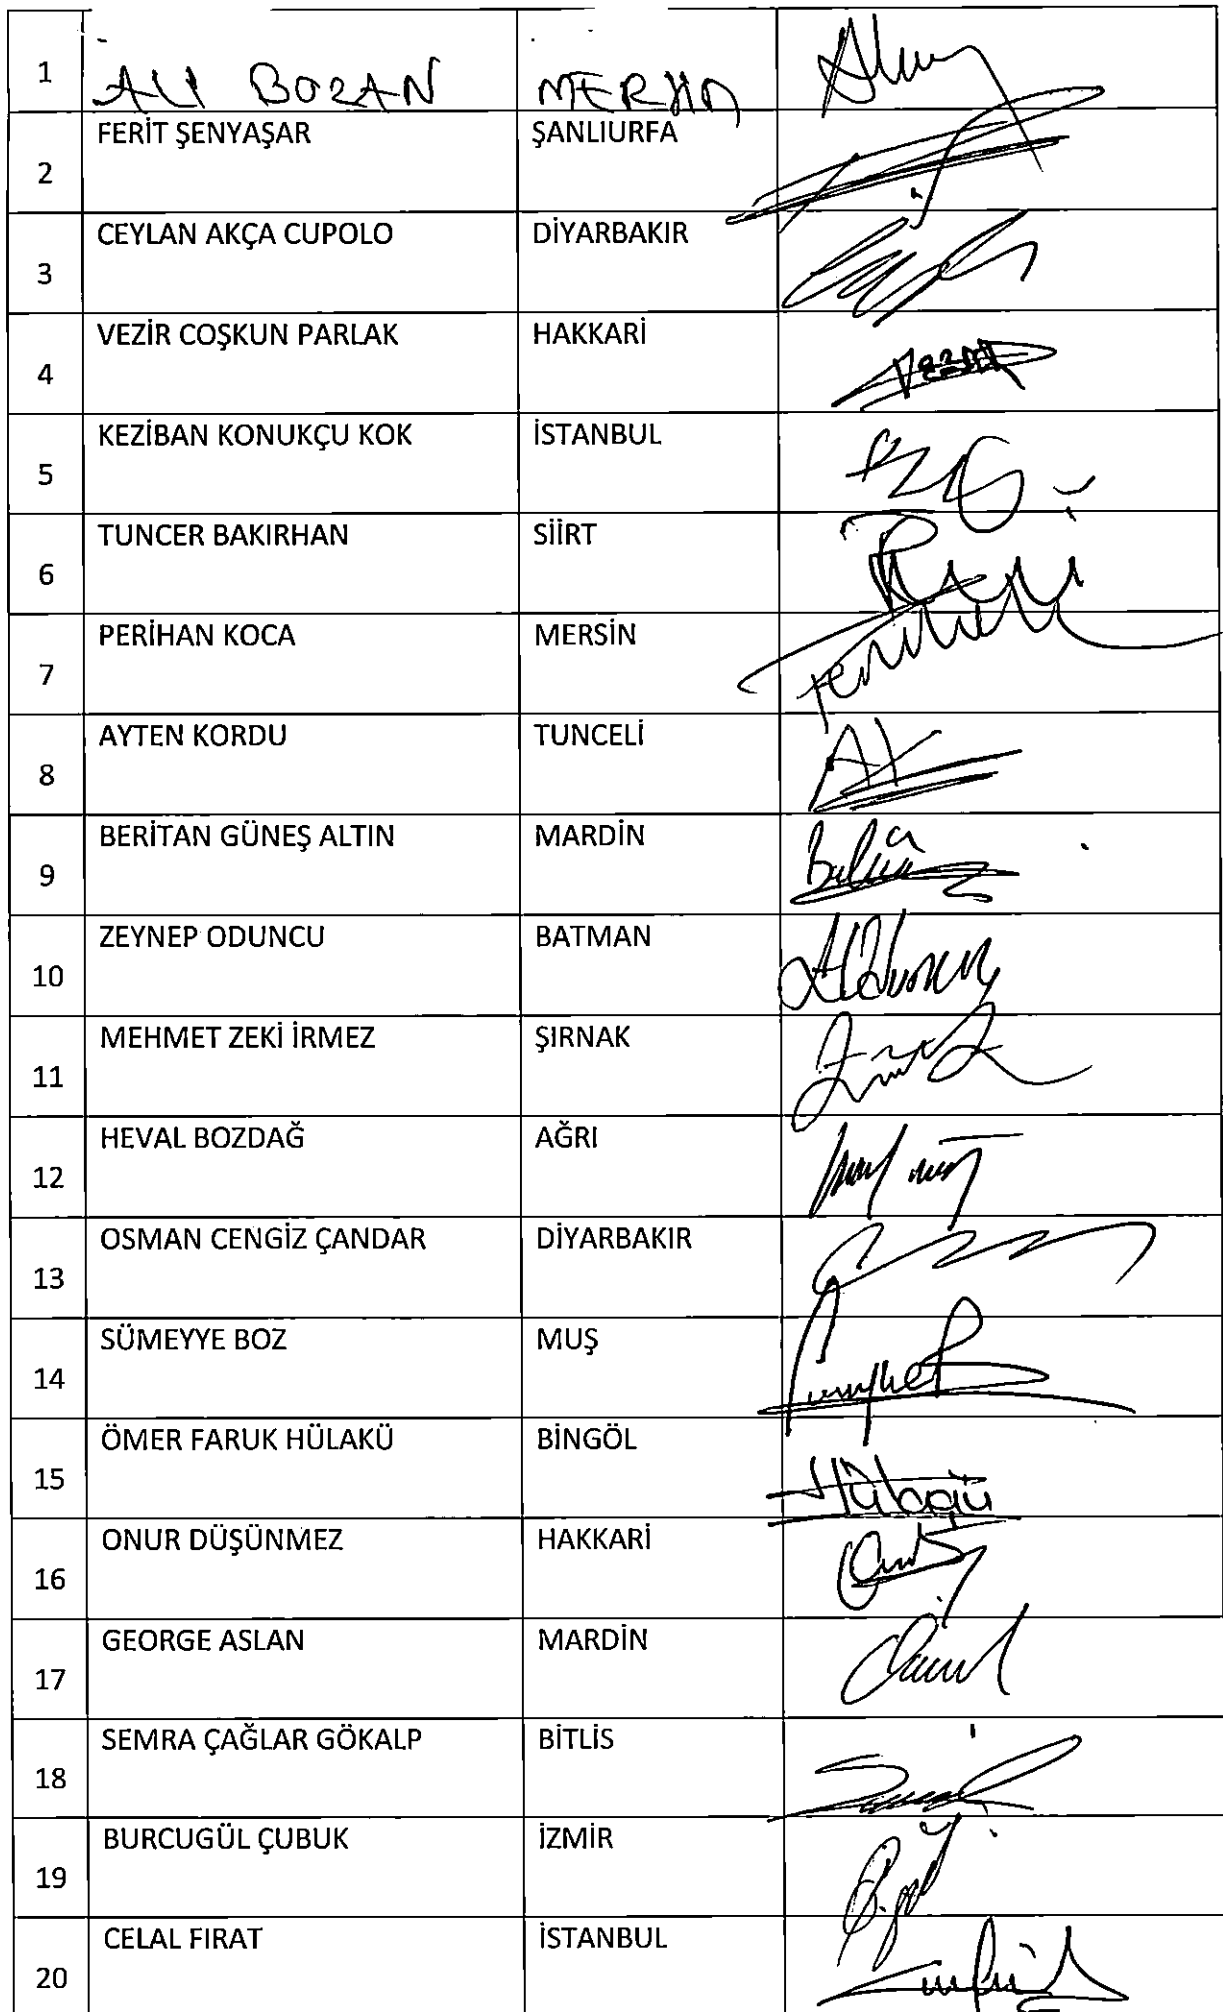 1 ALİ BOZAN MERSİN
2 FERİT ŞENYAŞAR ŞANLIURFA
3 CEYLAN AKÇA CUPOLO DİYARBAKIR
4 VEZİR COŞKUN PARLAK HAKKARİ
5 KEZİBAN KONUKÇU KOK İSTANBUL
6 TUNCER BAKIRHAN SİİRT
7 PERİHAN KOCA MERSİN
8 AYTEN KORDU TUNCELİ
9 BERİTAN GÜNEŞ ALTIN MARDİN
10 ZEYNEP ODUNCU BATMAN
11 MEHMET ZEKİ İRMEZ ŞIRNAK
12 HEVAL BOZDAĞ AĞRI
13 OSMAN CENGİZ ÇANDAR DİYARBAKIR
14 SÜMEYYE BOZ MUŞ
15 ÖMER FARUK HÜLAKÜ BİNGÖL
16 ONUR DÜŞÜNMEZ HAKKARİ
17 GEORGE ASLAN MARDİN
18 SEMRA ÇAĞLAR GÖKALP BİTLİS
19 BURCUGÜL ÇUBUK İZMİR
20 CELAL FIRAT İSTANBUL